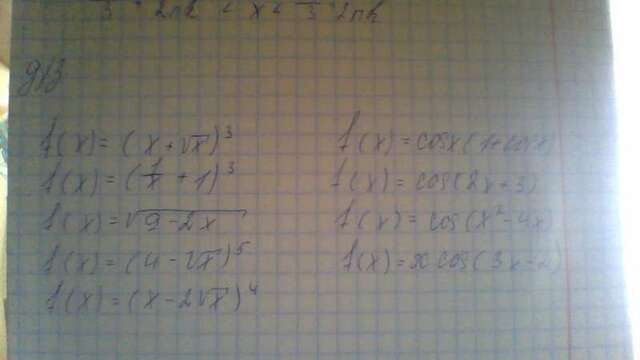 2πk < x < 2πk
д/з
f(x) = (x + √x)³
f(x) = (1/x + 1)³
f(x) = √(9 - 2x)
f(x) = (4 - √x)⁵
f(x) = (x - 2√x)⁴
f(x) = cosx(1+cosx)
f(x) = cos(2x+3)
f(x) = cos(x² - 4x)
f(x) = x cos(3x-2)